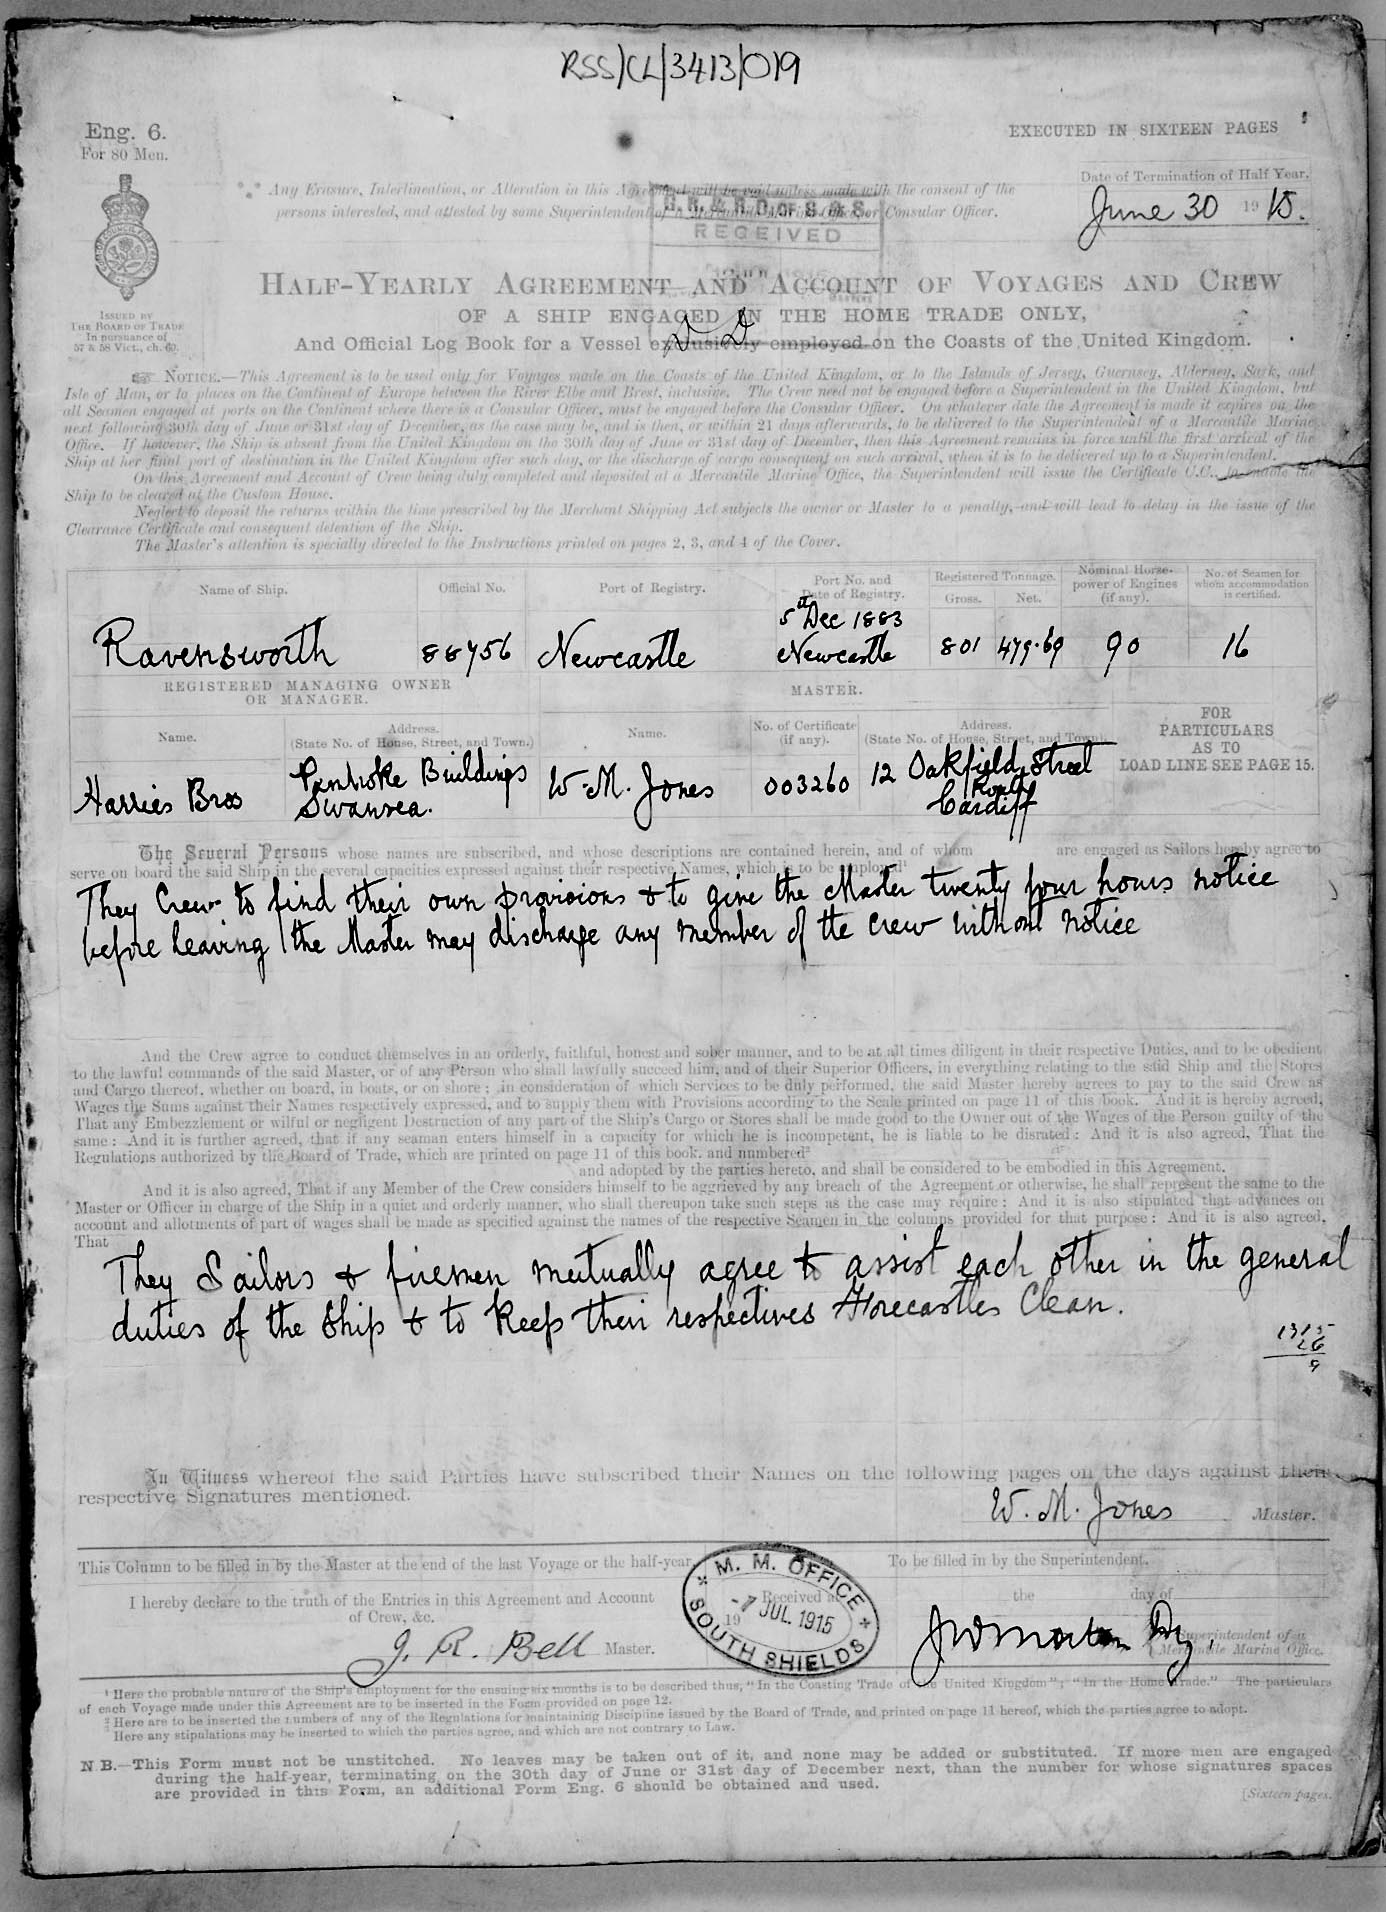 RSS/CL/3413/019
Eng. 6.
For 80 Men.
EXECUTED IN SIXTEEN PAGES
Date of Termination of Half Year.
June 30 1915.
Any Erasure, Interlineation, or Alteration in this Agreement will be void unless made with the consent of the
persons interested, and attested by some Superintendent of a Mercantile Marine Office or Consular Officer.
RECEIVED
ISSUED BY
THE BOARD OF TRADE
In pursuance of
57 & 58 Vict., ch. 60.
HALF-YEARLY AGREEMENT AND ACCOUNT OF VOYAGES AND CREW
OF A SHIP ENGAGED IN THE HOME TRADE ONLY,
And Official Log Book for a Vessel exclusively employed on the Coasts of the United Kingdom.
NOTICE.—This Agreement is to be used only for Voyages made on the Coasts of the United Kingdom, or to the Islands of Jersey, Guernsey, Alderney, Sark, and
Isle of Man, or to places on the Continent of Europe between the River Elbe and Brest, inclusive. The Crew need not be engaged before a Superintendent in the United Kingdom, but
all Seamen engaged at ports on the Continent where there is a Consular Officer, must be engaged before the Consular Officer. On whatever date the Agreement is made it expires on the
next following 30th day of June or 31st day of December, as the case may be, and is then, or within 21 days afterwards, to be delivered to the Superintendent of a Mercantile Marine
Office. If however, the Ship is absent from the United Kingdom on the 30th day of June or 31st day of December, then this Agreement remains in force until the first arrival of the
Ship at her final port of destination in the United Kingdom after such day, or the discharge of cargo consequent on such arrival, when it is to be delivered up to a Superintendent.
On this Agreement and Account of Crew being duly completed and deposited at a Mercantile Marine Office, the Superintendent will issue the Certificate C.C., to enable the
Ship to be cleared at the Custom House.
Neglect to deposit the returns within the time prescribed by the Merchant Shipping Act subjects the owner or Master to a penalty, and will lead to delay in the issue of the
Clearance Certificate and consequent detention of the Ship.
The Master's attention is specially directed to the Instructions printed on pages 2, 3, and 4 of the Cover.
Name of Ship. Official No. Port of Registry. Port No. and Date of Registry. Registered Tonnage. Gross. Net. Nominal Horse-power of Engines (if any). No. of Seamen for whom accommodation is certified.
5th Dec 1883
Ravensworth 88756 Newcastle Newcastle 801 479.69 90 16
REGISTERED MANAGING OWNER
OR MANAGER.
MASTER.
Name. Address. (State No. of House, Street, and Town.) Name. No. of Certificate (if any). Address. (State No. of House, Street, and Town).
FOR
PARTICULARS
AS TO
LOAD LINE SEE PAGE 15.
Harries Bros Pembroke Buildings Swansea. W. M. Jones 003260 12 Oakfield Street Roath Cardiff
The Several Persons whose names are subscribed, and whose descriptions are contained herein, and of whom are engaged as Sailors hereby agree to
serve on board the said Ship in the several capacities expressed against their respective Names, which is to be employed¹
They Crew to find their own provisions & to give the Master twenty four hours notice
before leaving the Master may discharge any member of the crew without notice
And the Crew agree to conduct themselves in an orderly, faithful, honest and sober manner, and to be at all times diligent in their respective Duties, and to be obedient
to the lawful commands of the said Master, or of any Person who shall lawfully succeed him, and of their Superior Officers, in everything relating to the said Ship and the Stores
and Cargo thereof, whether on board, in boats, or on shore; in consideration of which Services to be duly performed, the said Master hereby agrees to pay to the said Crew as
Wages the Sums against their Names respectively expressed, and to supply them with Provisions according to the Scale printed on page 11 of this book. And it is hereby agreed,
That any Embezzlement or wilful or negligent Destruction of any part of the Ship's Cargo or Stores shall be made good to the Owner out of the Wages of the Person guilty of the
same: And it is further agreed, that if any seaman enters himself in a capacity for which he is incompetent, he is liable to be disrated: And it is also agreed, That the
Regulations authorized by the Board of Trade, which are printed on page 11 of this book, and numbered²
and adopted by the parties hereto, and shall be considered to be embodied in this Agreement.
And it is also agreed, That if any Member of the Crew considers himself to be aggrieved by any breach of the Agreement or otherwise, he shall represent the same to the
Master or Officer in charge of the Ship in a quiet and orderly manner, who shall thereupon take such steps as the case may require: And it is also stipulated that advances on
account and allotments of part of wages shall be made as specified against the names of the respective Seamen in the columns provided for that purpose: And it is also agreed,
That
They Sailors & firemen mutually agree to assist each other in the general
duties of the Ship & to keep their respectives Forecastles Clean.
In Witness whereof the said Parties have subscribed their Names on the following pages on the days against their
respective Signatures mentioned.
W. M. Jones Master.
This Column to be filled in by the Master at the end of the last Voyage or the half-year.
To be filled in by the Superintendent.
I hereby declare to the truth of the Entries in this Agreement and Account
of Crew, &c.
J. R. Bell Master.
M. M. OFFICE
Received at
19
7 JUL. 1915
SOUTH SHIELDS
the day of
Superintendent of a
Mercantile Marine Office.
¹ Here the probable nature of the Ship's employment for the ensuing six months is to be described thus, "In the Coasting Trade of the United Kingdom"; "In the Home Trade." The particulars
of each Voyage made under this Agreement are to be inserted in the Form provided on page 12.
² Here are to be inserted the numbers of any of the Regulations for maintaining Discipline issued by the Board of Trade, and printed on page 11 hereof, which the parties agree to adopt.
³ Here any stipulations may be inserted to which the parties agree, and which are not contrary to Law.
N.B.—This Form must not be unstitched. No leaves may be taken out of it, and none may be added or substituted. If more men are engaged
during the half-year, terminating on the 30th day of June or 31st day of December next, than the number for whose signatures spaces
are provided in this Form, an additional Form Eng. 6 should be obtained and used.
[Sixteen pages.